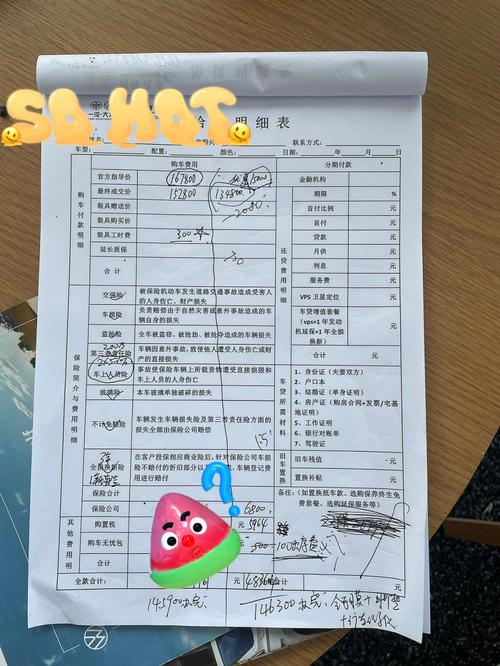 SO HOT
明细表
联系方式:
车型: 配置: 颜色: 日期: 年 月 日
购车费用 分期付款
购车付款明细
官方指导价 167800 金融机构
最终成交价 152800 134800 期限 %
装具赠送价 首付比例 元
装具购买价 首付 元
装具工时费 300 贷款 元
延长质保 月供 元
合计 利息 元
还贷费用明细
服务费 元
VPS 卫星定位 元
车贷增值套餐(vps+1 年发动机延保+1 年全损换新) 元
合计: 元
保险简介与费用明细
交强险 被保险机动车发生道路交通事故造成受害人的人身伤亡、财产损失
车损险 负责赔偿由于自然灾害或意外事故造成的车辆自身的损失
盗抢险 全车被盗窃、被抢劫、被抢夺造成的车辆损失
第三者责任险 车辆因意外事故,致使他人遭受人身伤亡或财产的直接损失
车上人员险 事故使保险车辆上所载货物遭受直接损毁和车上人员的人身伤亡
玻璃险 本车玻璃单独破碎的损失
不计免赔险 车辆发生车辆损失险及第三者责任险方面的损失全部由保险公司赔偿
全损换新险 在客户投保相应商业险后,针对保险公司车损险不赔付的折旧部分以及 车辆登记费用进行赔付
车贷所需材料
1、身份证(夫妻双方)
2、户口本
3、结婚证(单身证明)
4、房产证(购房合同+发票/宅基地证明)
5、工作证明
6、银行对账单
7、驾驶证
旧车置换
旧车残值 元
置换补贴 元
保险合计
备注:(如置换抵车款、选购保养终生免费套餐、选购延保服务等)
其他费用明细
保险公司 6800
购置税 5966 元
购车无忧包 500
全款合计: 元
145900办完 146300办完